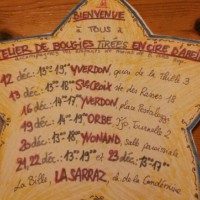 BIENVENUE
à TOUS à
ATELIER DE BOUGIES TIRÉES EN CIRE D'ABEI
12 déc. 13ʰ⁰⁰-19ʰ YVERDON, quai de la Thièle 3
13 déc. 14ʰ-18ʰ Ste CROIX rue des Rasses 18
16 déc. 14ʰ-17ʰ YVERDON place Pestalozzi
19 déc. 14ʰ-19ʰ ORBE
20 déc. 13ʰ-18ʰ YVONAND, salle paroissiale
21, 22 déc. 13ʰ-19ʰ et 23 déc. 13ʰ-17ʰ
La Bille, LA SARRAZ, ch. de la Condémine